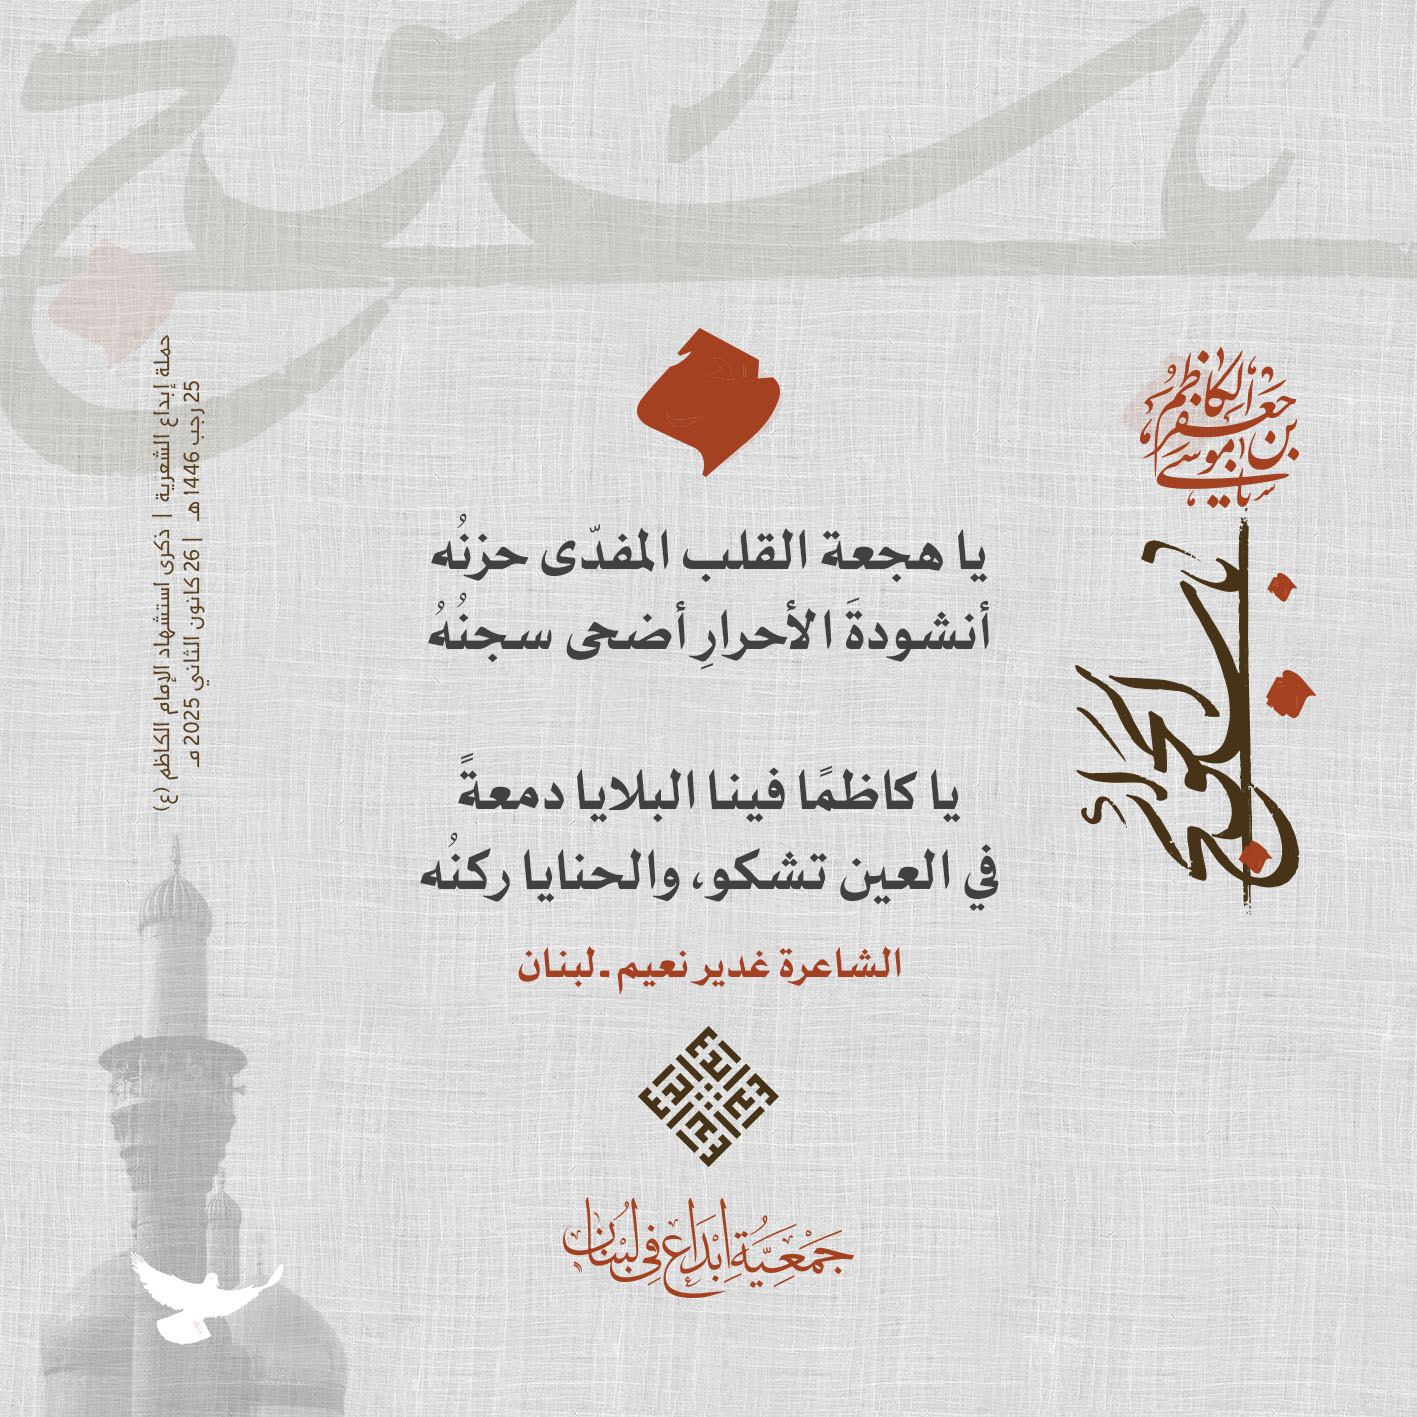 يا هجعة القلب المفدّى حزنُه
أنشودةَ الأحرارِ أضحى سجنُهُ
يا كاظمًا فينا البلايا دمعةً
في العين تشكو، والحنايا ركنُه
الشاعرة غدير نعيم ـ لبنان
جَمْعِيَّةُ إِبْدَاع فِي لُبْنَان
باب الحوائج
يا موسى بن جعفر الكاظم
حملة إبداع الشعرية | ذكرى استشهاد الإمام الكاظم (ع)
25 رجب 1446 هـ | 26 كانون الثاني 2025 مـ